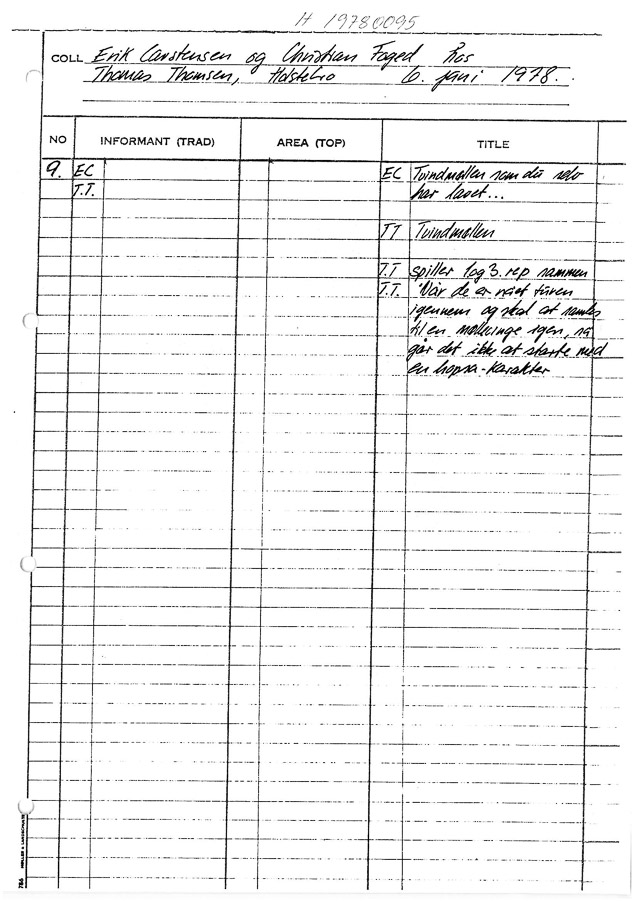 H 19780095
COLL Erik Carstensen og Christian Foged hos
Thomas Thomsen, Holstebro 6. juni 1978.
NO INFORMANT (TRAD) AREA (TOP) TITLE
9. EC EC Tvindmøllen som du selv
T.T. har lavet...
TT Tvindmøllen
T.T spiller 1 og 3. rep sammen
T.T. "Når de er nået turen
igennem og skal at samles
til en møllevinge igen, så
går det ikke at starte med
en hopsa-karakter
786 MØLLER & LANDSCHULTZ